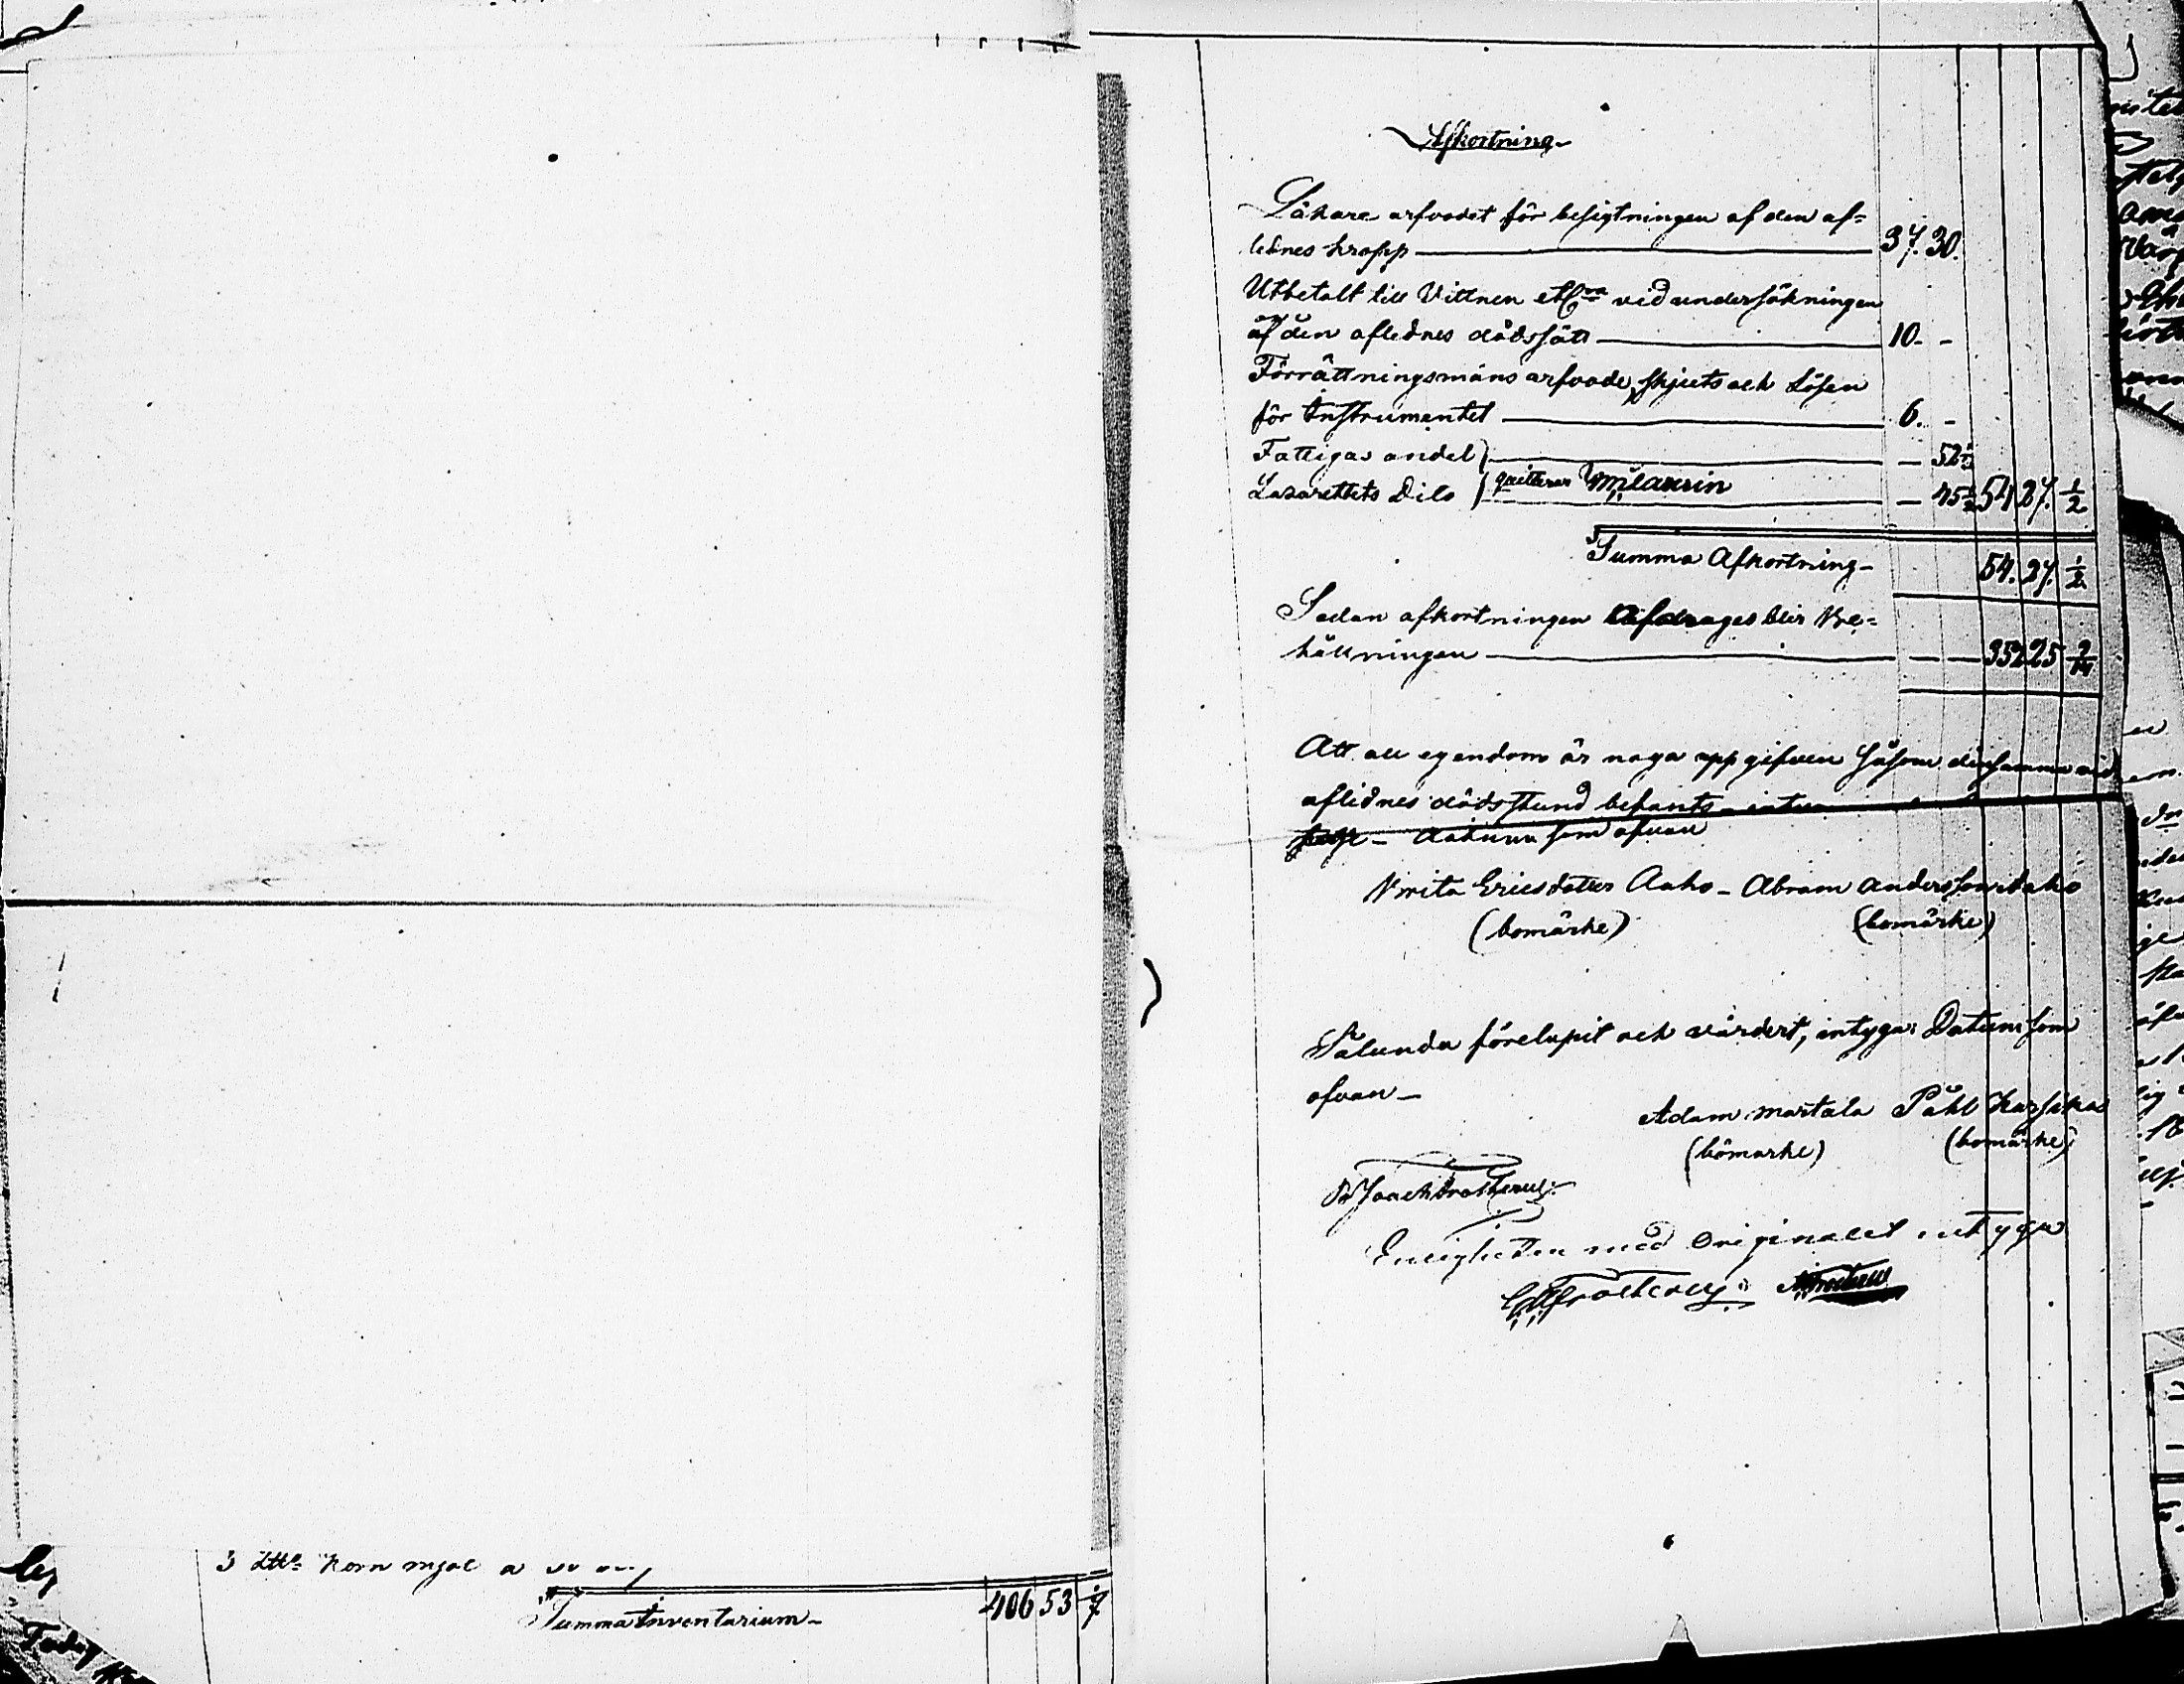 3 Korn mjöl a
Summa Inventarium 406 53 1/7
Afkortning
Läkare arfvodet för besigtningen af den af=
lednes kropp 37. 30.
Utbetalt till Vittnen etc ved undersökningen
af den aflednes dödssätt 10. -
Förrättningsmäns arfvode, skjuts och Lösen
för Instrumentet 6. -
Fattigas andel — 52 1/2
Lazarettets Dito quitteras — 45 1/2 54 27. 1/2
Summa Afkortning 54. 27. 1/2
Sedan afkortningen afdrages blir Be=
hållningen 352 25 9/14
Att all egendom är noga uppgifven såsom densamma vid
aflidnes dödsstund befants
Datum som ofvan
Brita Ericsdotter Aaho - Abram Andersson Aaho
(bomärke) (bomärke)
Sålunda förelupit och värdert, intyga: Datum som
ofvan
Adam Martala Påhl Karsikas
(bömarke) (bomärke)
Enligheten med Originalet intyga